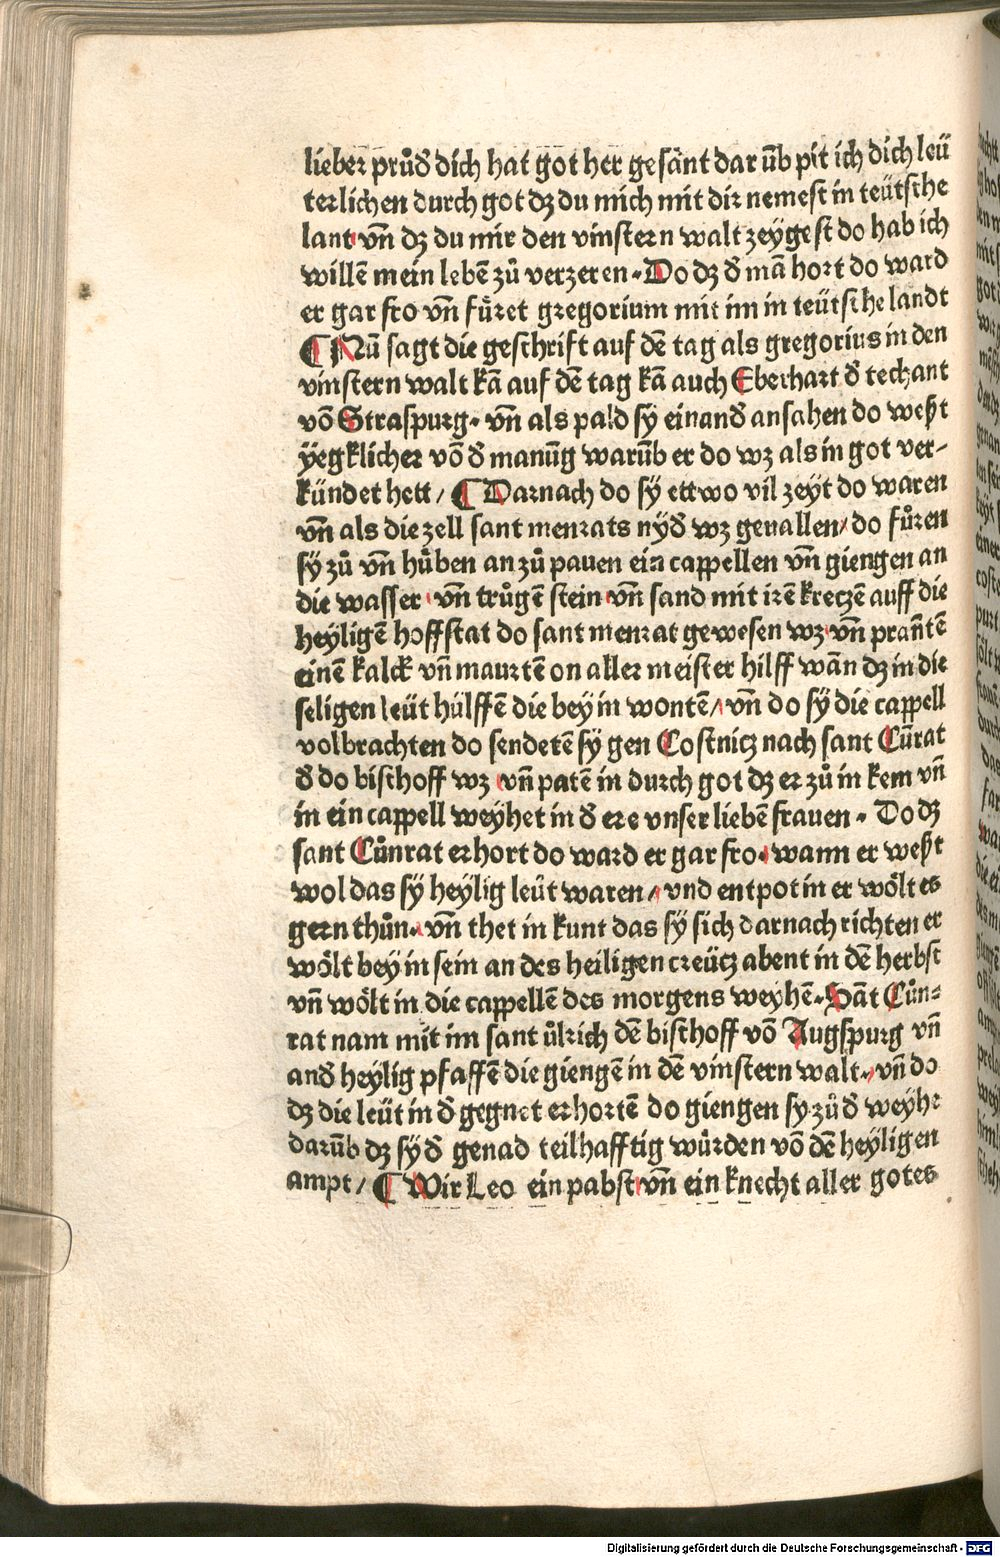 lieber průd̕ dich hat got her gesant dar ūb pit ich dich leü
terlichen durch got dz du mich mit dir nemest in teütsche
lant vn̄ dz du mir den vinstern walt zeygest do hab ich
willē mein lebē zů verzeren. Do dz d̕ mā hort do ward
er gar fro vn̄ fůret gregorium mit im in teütsche landt
¶ Nū sagt die geschrift auf dē tag als gregorius in den
vinstern walt kā auf dē tag kā auch Eberhart d̕ techant
vō Straspurg. vn̄ als pald sy einand̕ ansahen do weßt
ÿegklicher vō d̕ manūg warūb er do wz als in got ver-
kündet hett / ¶ Darnach do sÿ ettwo vil zeyt do waren
vn̄ als die zell sant menrats nÿd̕ wz geuallen / do fůren
sÿ zů vn̄ hůben an zů pauen ein cappellen vn̄ giengen an
die wasser vn̄ trůgē stein vn̄ sand mit irē kreczē auff die
heyligē hoffstat do sant menrat gewesen wz vn̄ prantē
einē kalck vn̄ maurtē on aller meister hilff wān dz in die
seligen leüt hülffē die bey in wontē / vn̄ do sÿ die cappell
volbrachten do sendetē sÿ gen Costnicz nach sant Cūrat
d̕ do bischoff wz vn̄ patē in durch got dz er zů in kem vn̄
in ein cappell weyhet in d̕ ere vnser liebē frauen. Do dz
sant Cůnrat erhort do ward er gar fro. wann er weßt
wol das sÿ heylig leüt waren / vnd entpot in er wölt es
gern thůn. vn̄ thet in kunt das sÿ sich darnach richten er
wölt bey in sein an des heiligen creücz abent in dē herbst
vn̄ wölt in die cappellē des morgens weyhē. Sāt Cůn=
rat nam mit im sant ůlrich dē bischoff vō Augspurg vn̄
and̕ heylig pfaffē die giengē in dē vinstern walt. vn̄ do
dz die leüt in d̕ gegnet erhortē do giengen sy zů d̕ weyhe
darūb dz sÿ d̕ genad teilhafftig würden vō dē heyligen
ampt / ¶ Wir Leo ein pabst vn̄ ein knecht aller gotes
Digitalisierung gefördert durch die Deutsche Forschungsgemeinschaft - DFG